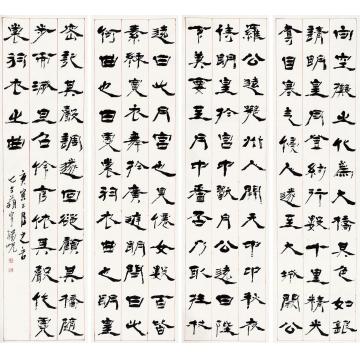 向空擲之化為大橋其色如銀
請明皇同登約行數十里精光
奪目寒氣侵人遂至大城公
羅公遠鄂州人中秋夜
侍明皇於宮中翫月公遠曰陛
下莫要至月中看否乃取拄杖
遠曰此月宮也見仙女數百皆
素練寬衣舞於廣庭問曰此
何曲也曰霓裳羽衣也
密記其聲調遂回卻顧其橋隨
步而滅旦召伶官依其聲作霓
裳羽衣之曲
庚寅正月之吉